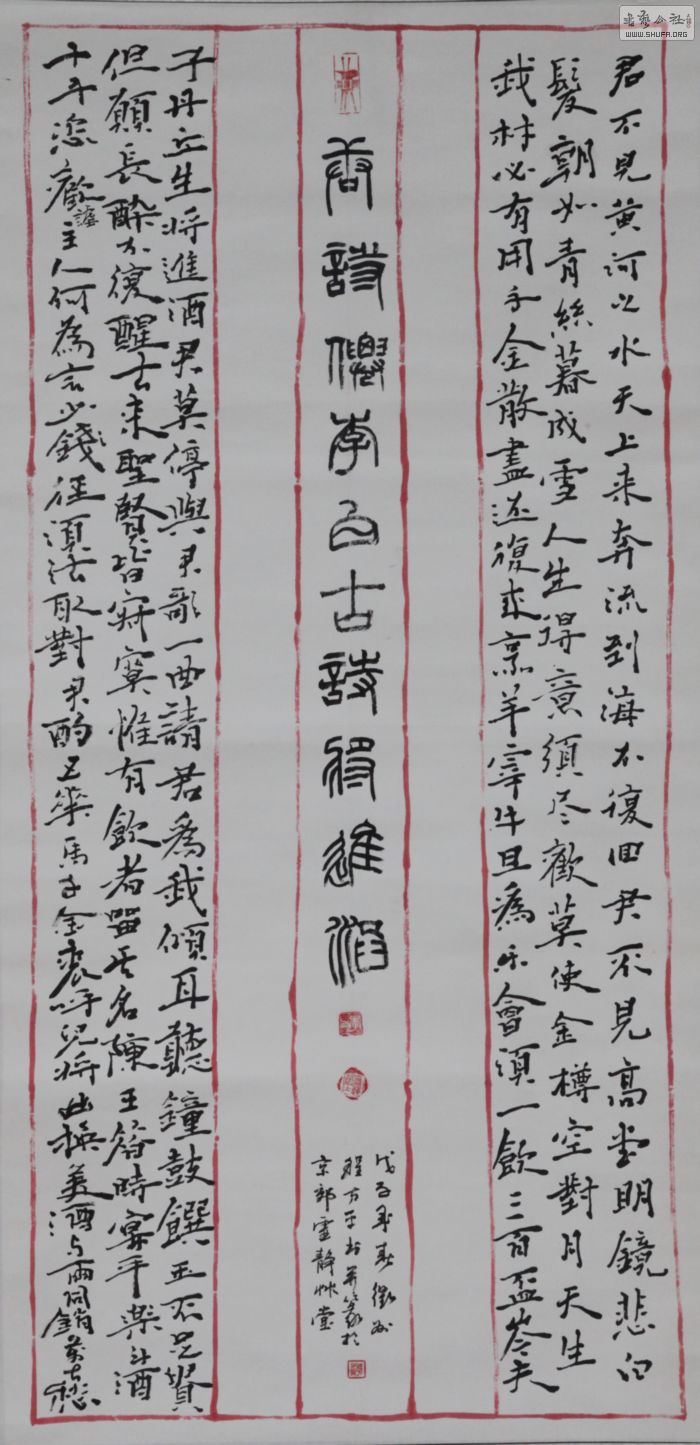 書藝公社
WWW.SHUFA.ORG
君不見黃河之水天上来奔流到海不復回君不見高堂明鏡悲白
髮朝如青絲暮成雪人生得意須尽歡莫使金樽空對月天生
我材必有用千金散盡还復来烹羊宰牛且為樂會須一飲三百盃岑夫
唐詩僊李白古詩將進酒
戊子春徽州
程方平书并篆於
京郊靈靜草堂
子丹丘生将進酒君莫停與君歌一曲請君為我傾耳聽鐘鼓饌玉不足貴
但願長醉不復醒古来聖賢皆寂寞惟有飲者留其名陳王昔時宴平樂斗酒
十千恣歡謔主人何為言少錢徑須沽取對君酌五華馬千金裘呼兒将出換美酒与爾同銷萬古愁